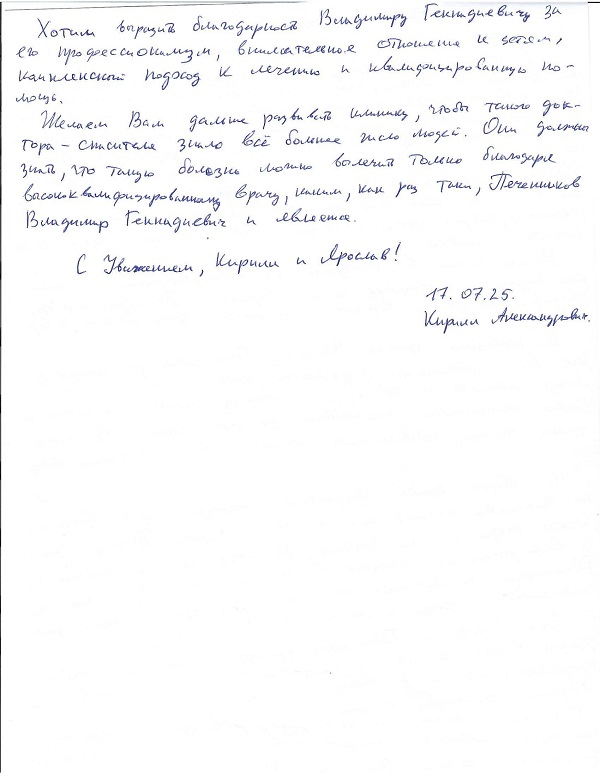 Хотим выразить благодарность Владимиру Геннадиевичу за
его профессионализм, внимательное отношение к детям,
комплексный подход к лечению и квалифицированную по-
мощь.
Желаем Вам дальше развивать клинику, чтобы такого док-
тора – спасителя знало всё больше число людей. Они должны
знать, что такую болезнь можно вылечить только благодаря
высококвалифицированному врачу, каким, как раз таки, Печенников
Владимир Геннадиевич и является.
С Уважением, Кирилл и Ярослав!
17.07.25.
Кирилл Александрович.